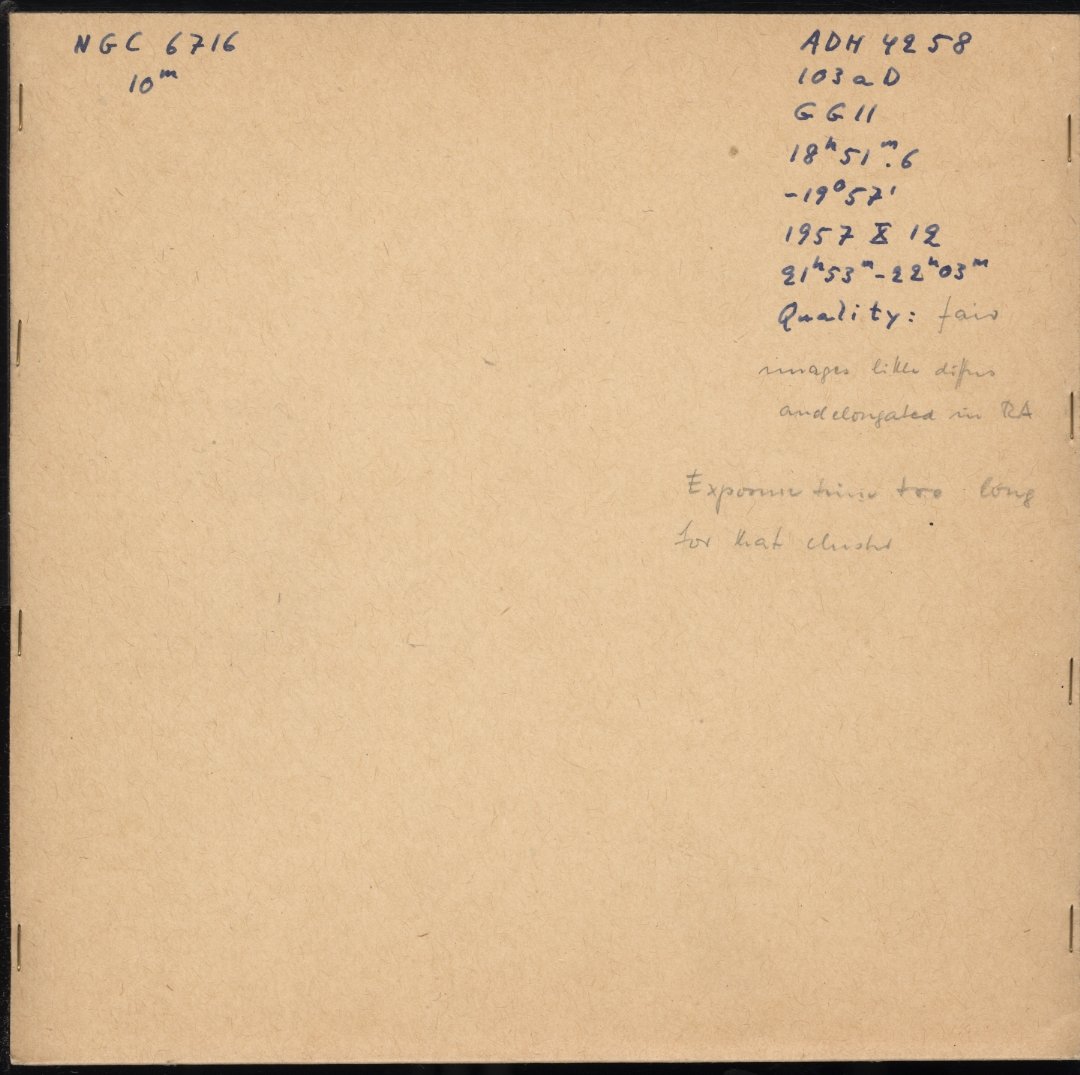 NGC 6716
10ᵐ
ADH 4258
103aD
GG11
18ʰ51ᵐ.6
-19°57'
1957 X 12
21ʰ53ᵐ-22ʰ03ᵐ
Quality: fair
images little diffus
and elongated in RA
Exposure time too long
for that cluster